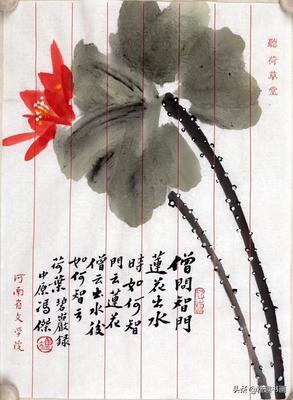 聽荷草堂
僧問智門
蓮花出水
時如何智
門云蓮花
僧云出水後
如何智云
荷葉碧巖錄
中原馮傑
河南省文学院
头条